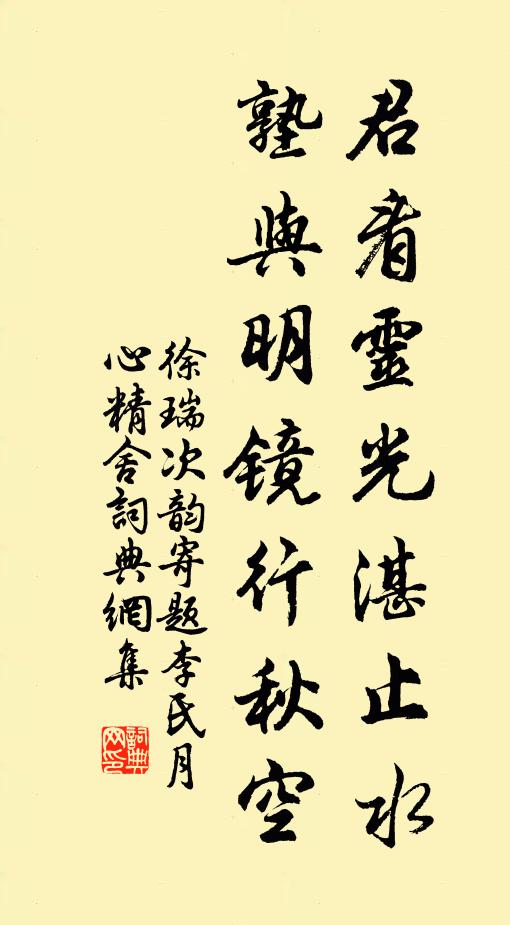 君看靈光湛止水
孰與明鏡行秋空
徐瑞次韵寄题李氏月
心精舍詞典網集
詞典
网印